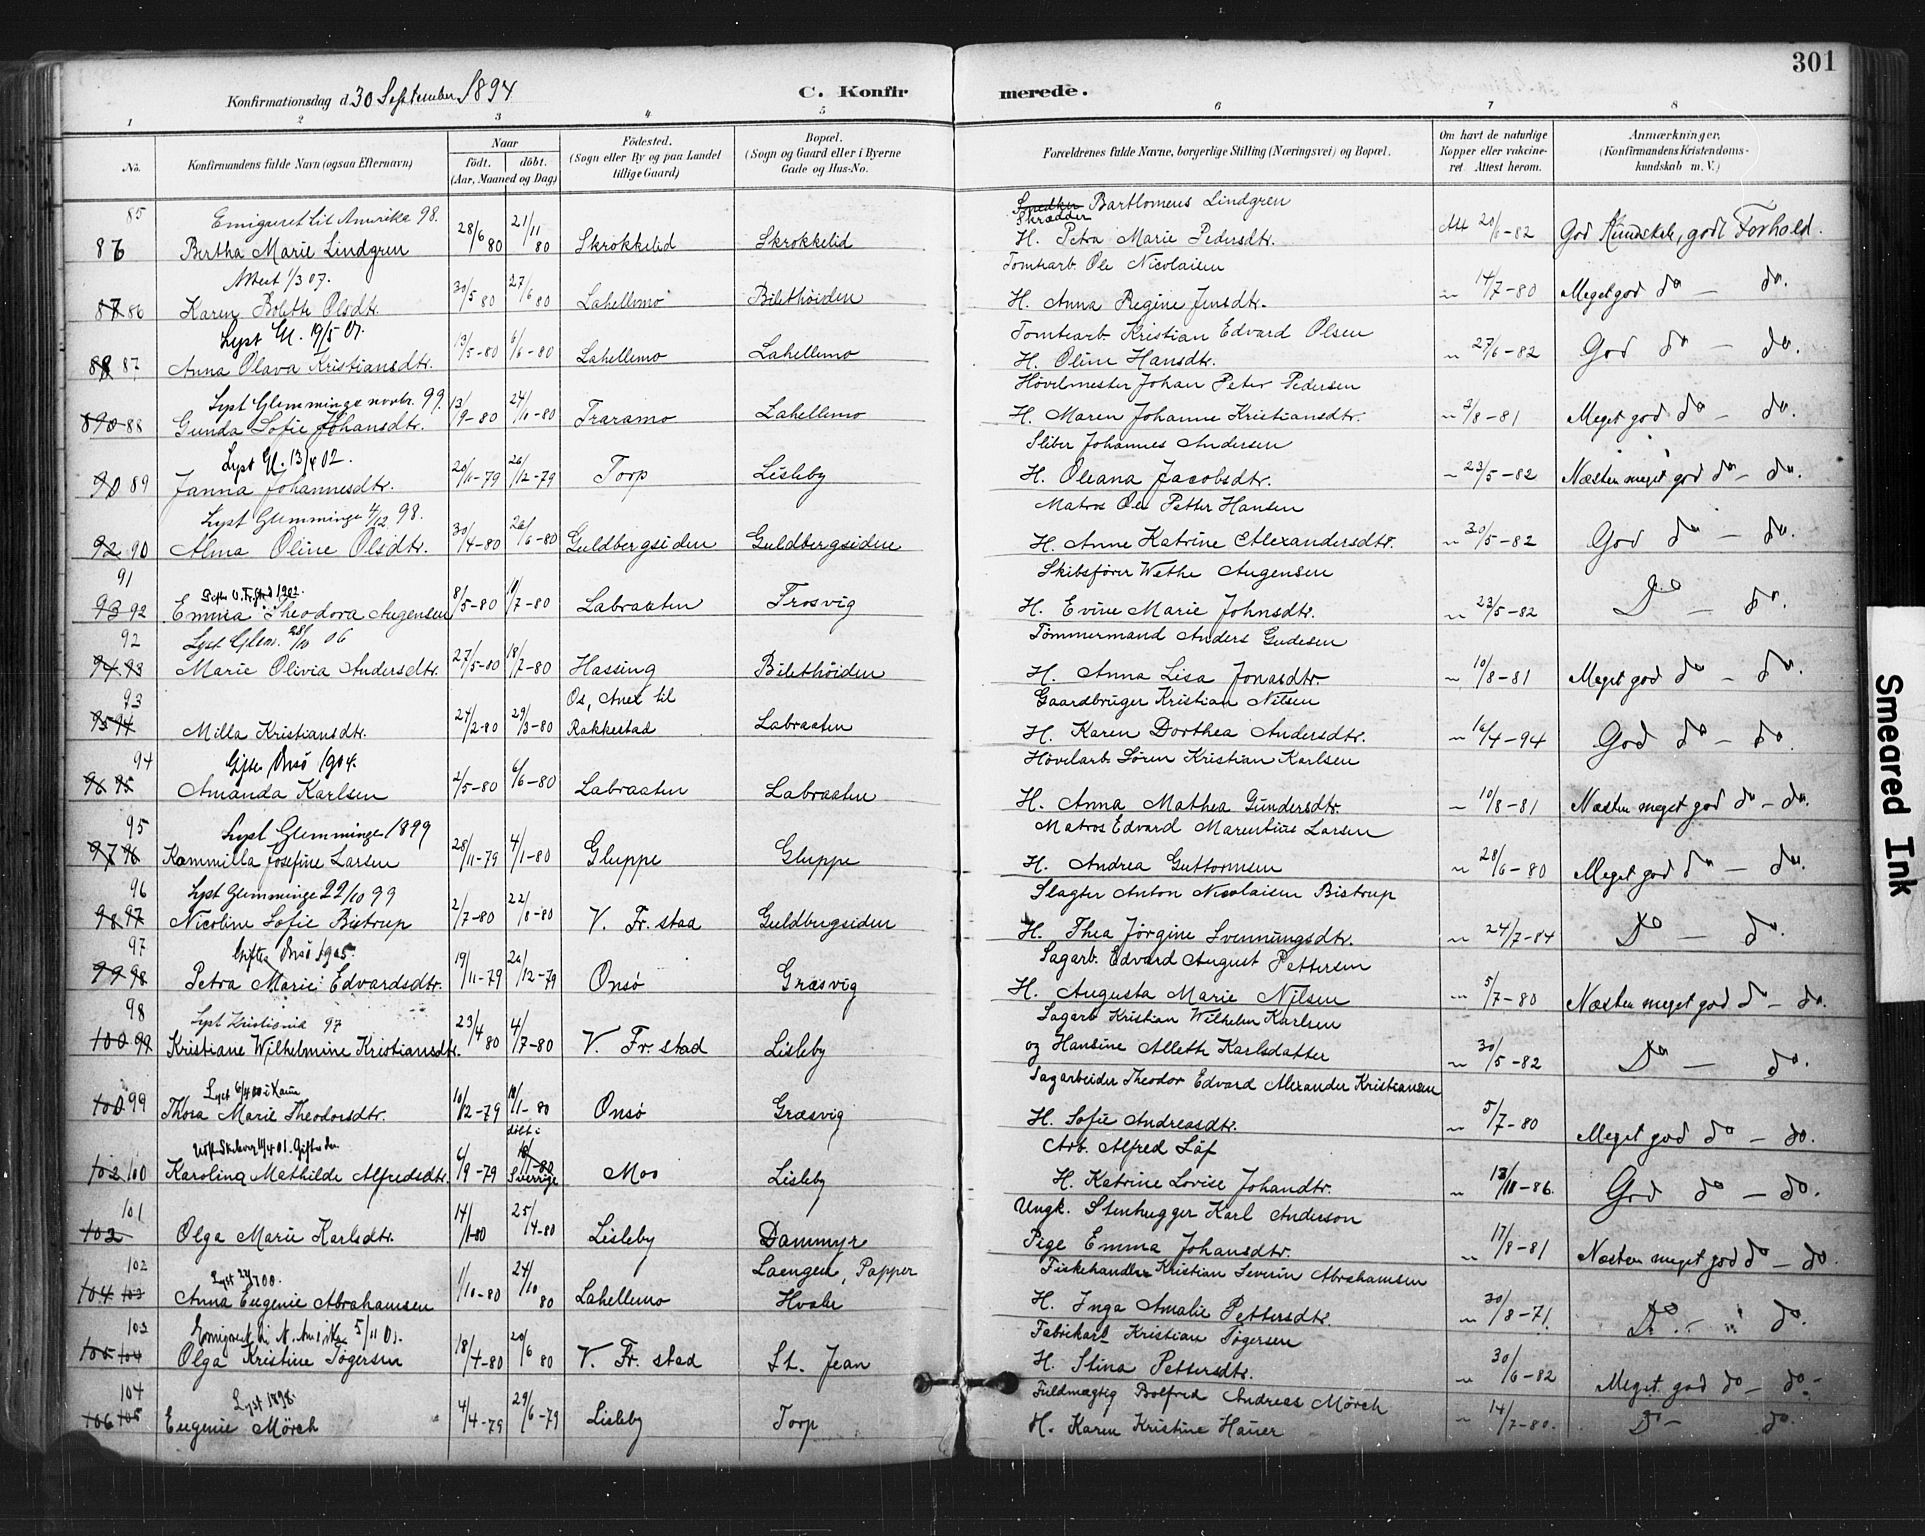 301
Konfirmationsdag d. 30 September 1894
C. Konfirmerede.
1 2 3 4 5 6 7 8
No. Konfirmandens fulde Navn (ogsaa Efternavn) Naar födt. döbt. (Aar, Maaned og Dag) Födested. (Sogn eller By og paa Landet tillige Gaard) Bopæl. (Sogn og Gaard eller i Byerne Gade og Hus-No. Forældrenes fulde Navne, borgerlige Stilling (Næringsvei) og Bopæl. Om havt de naturlige Kopper eller vakcineret Attest herom. Anmærkninger, (Konfirmandens Kristendomskundskab m. V.)
85 Emigreret til Amerika 98. Snedker Bartlomeus Lindgren
Skrædder
86 Bertha Marie Lindgren 28/6 80 21/11 80 Skrokkelid Skrokkelid H. Petra Marie Pedersdtr. Att 20/6-82 God Kundskab, godt Forhold.
Attest 1/3 07. Tomtarb. Ole Nicolaisen
87 86 Karen Bolette Olsdtr. 30/5 80 27/6 80 Lahellemo Bilethöiden H. Anna Regine Jensdtr. " 14/7-80 Meget god do - do.
Lyst Gl. 19/5 07. Tomtarb. Kristian Edvard Olsen
88 87 Anna Olava Kristiansdtr. 13/5-80 6/6-80 Lahellemo Lahellemo H. Oline Hansdtr. " 27/6-82 God do - do.
Lyst Glemminge novbr. 99. Hövelmester Johan Peter Pedersen
890 88 Gunda Sofie Johansdtr. 13/9-80 24/10-80 Traramo Lahellemo H. Maren Johanne Kristiansdtr. " 3/8-81 Meget god do - do.
Lyst Gl. 13/4 02. Sliber Johannes Andersen
90 89 Janna Johannesdtr. 20/11-79 26/12-79 Torp Lisleby H. Oleana Jacobsdtr. " 23/5-82 Næsten meget god do - do.
Lyst Glemminge 4/12 98. Matros Ole Petter Hansen
92 90 Alma Oline Olsdtr. 30/4-80 26/6-80 Guldbergsiden Guldbergsiden H. Anne Katrine Alexandersdtr. " 30/5-82 God do - do.
91 Gift V. Fr.stad 1902. Skibsförer Wethe Augensen
93 92 Emma Theodora Augensen 8/5-80 11/7-80 Labraaten Trosvig H. Evine Marie Johnsdtr. " 23/5-82 Do - do.
92 Lyst Glem. 28/10 06 Tömmermand Anders Gudesen
94 93 Marie Olivia Andersdtr. 27/5-80 18/7-80 Hassing Bilethöiden H. Anna Lisa Jonasdtr. " 10/8-81 Meget god do - do.
93 Os, Anex til Gaardbruger Kristian Nilsen
95 94 Milla Kristiansdtr. 24/2-80 29/3-80 Rakkestad Labraaten H. Karen Dorthea Andersdtr. " 16/4-94 God do - do.
94 Gift Onsö 1904. Hövelarb. Sören Kristian Karlsen
96 95 Amanda Karlsen 2/5-80 6/6-80 Labraaten Labraaten H. Anna Mathea Gundersdtr. " 10/8-81 Næsten meget god do - do.
95 Lyst Glemminge 1899 Matros Edvard Marentius Larsen
97 96 Kammilla Josefine Larsen 28/11-79 4/1-80 Gluppe Gluppe H. Andrea Guttormsen " 28/6-80 Meget god do - do.
96 Lyst Glemminge 22/10 99 Slagter Anton Nicolaisen Bistrup
98 97 Nicoline Sofie Bistrup 2/7-80 22/8-80 V. Fr.stad Guldbergsiden H. Thea Jörgine Svenningsdtr. " 24/7-84 Do - do.
97 Gift Onsö 1905. Sagarb. Edvard August Pettersen
99 98 Petra Marie Edvardsdtr. 19/11-79 26/12-79 Onsö Græsvig H. Augusta Marie Nilsen " 5/7-80 Næsten meget god do - do.
98 Lyst Kristiania 97 Sagarb. Kristian Wilhelm Karlsen
100 99 Kristiane Wilhelmine Kristiansdtr. 23/4 80 4/7-80 V. Fr.stad Lisleby og Hansine Alleth Karlsdatter " 30/5-82 Do - do.
Sagarbeider Theodor Edvard Alexander Kristiansen
100 99 Thora Marie Theodorsdtr. 10/12-79 18/1-80 Onsö Græsvig H. Sofie Andreasdtr. " 5/7-80 Meget god do - do.
döbt i Arb. Alfred Löf
102 100 Karolina Mathilde Alfredsdtr. 6/9-79 Sverrige Moo Lisleby H. Katrine Lovise Johandtr. " 13/10-86. God do - do.
101 Ungk. Stenhugger Karl Anderson
102 Olga Marie Karlsdtr. 14/1-80 25/4-80 Lisleby Dammyr Pige Emma Johansdtr. " 17/8-81 Næsten meget god do - do.
102 Laengen, Papper Fiskehandler Kristian Severin Abrahamsen
104 103 Anna Eugenie Abrahamsen 1/10-80 24/10 80 Lahellemo Hvale H. Inga Amalie Pettersdtr. " 30/8-71 Do - do.
103 Emigreret til N. Amerika 5/11 01. Fabrikarb. Kristian Tögersen
105 104 Olga Kristine Tögersen 18/4-80 20/6 80 V. Fr. stad St. Jean H. Stina Pettersdtr. " 30/6-82 Meget god do - do.
104 Lyst 1898. Fuldmægtig Bolfred Andreas Mörch
106 105 Eugenie Mörch 4/4-79 29/6-79 Lisleby Torp H. Karen Kristine Hauer " 14/7-80. Do - do.
Smeared Ink